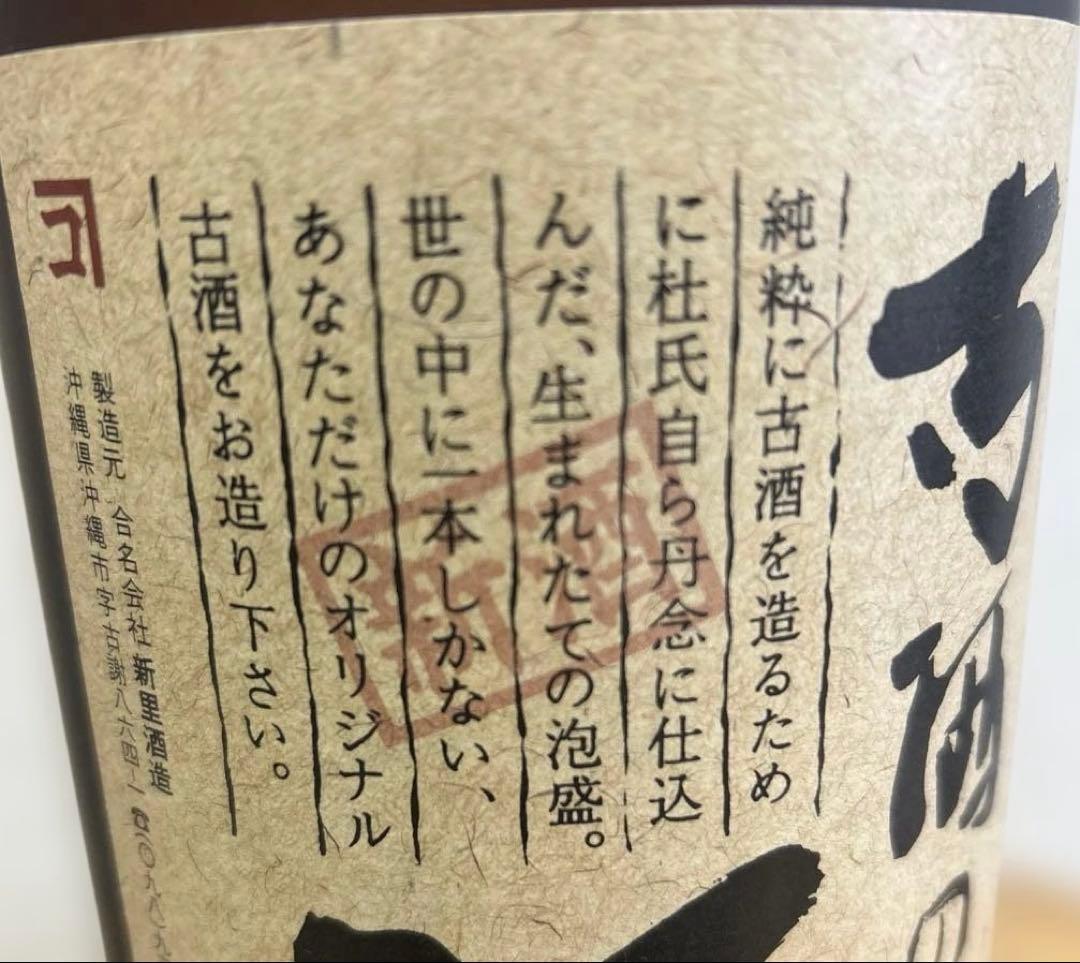 古酒の
純粋に古酒を造るため
に杜氏自ら丹念に仕込
んだ、生まれたての泡盛。
世の中に一本しかない、
あなただけのオリジナル
古酒をお造り下さい。
新酒
製造元 合名会社 新里酒造
沖縄県沖縄市字古謝八六四ー一